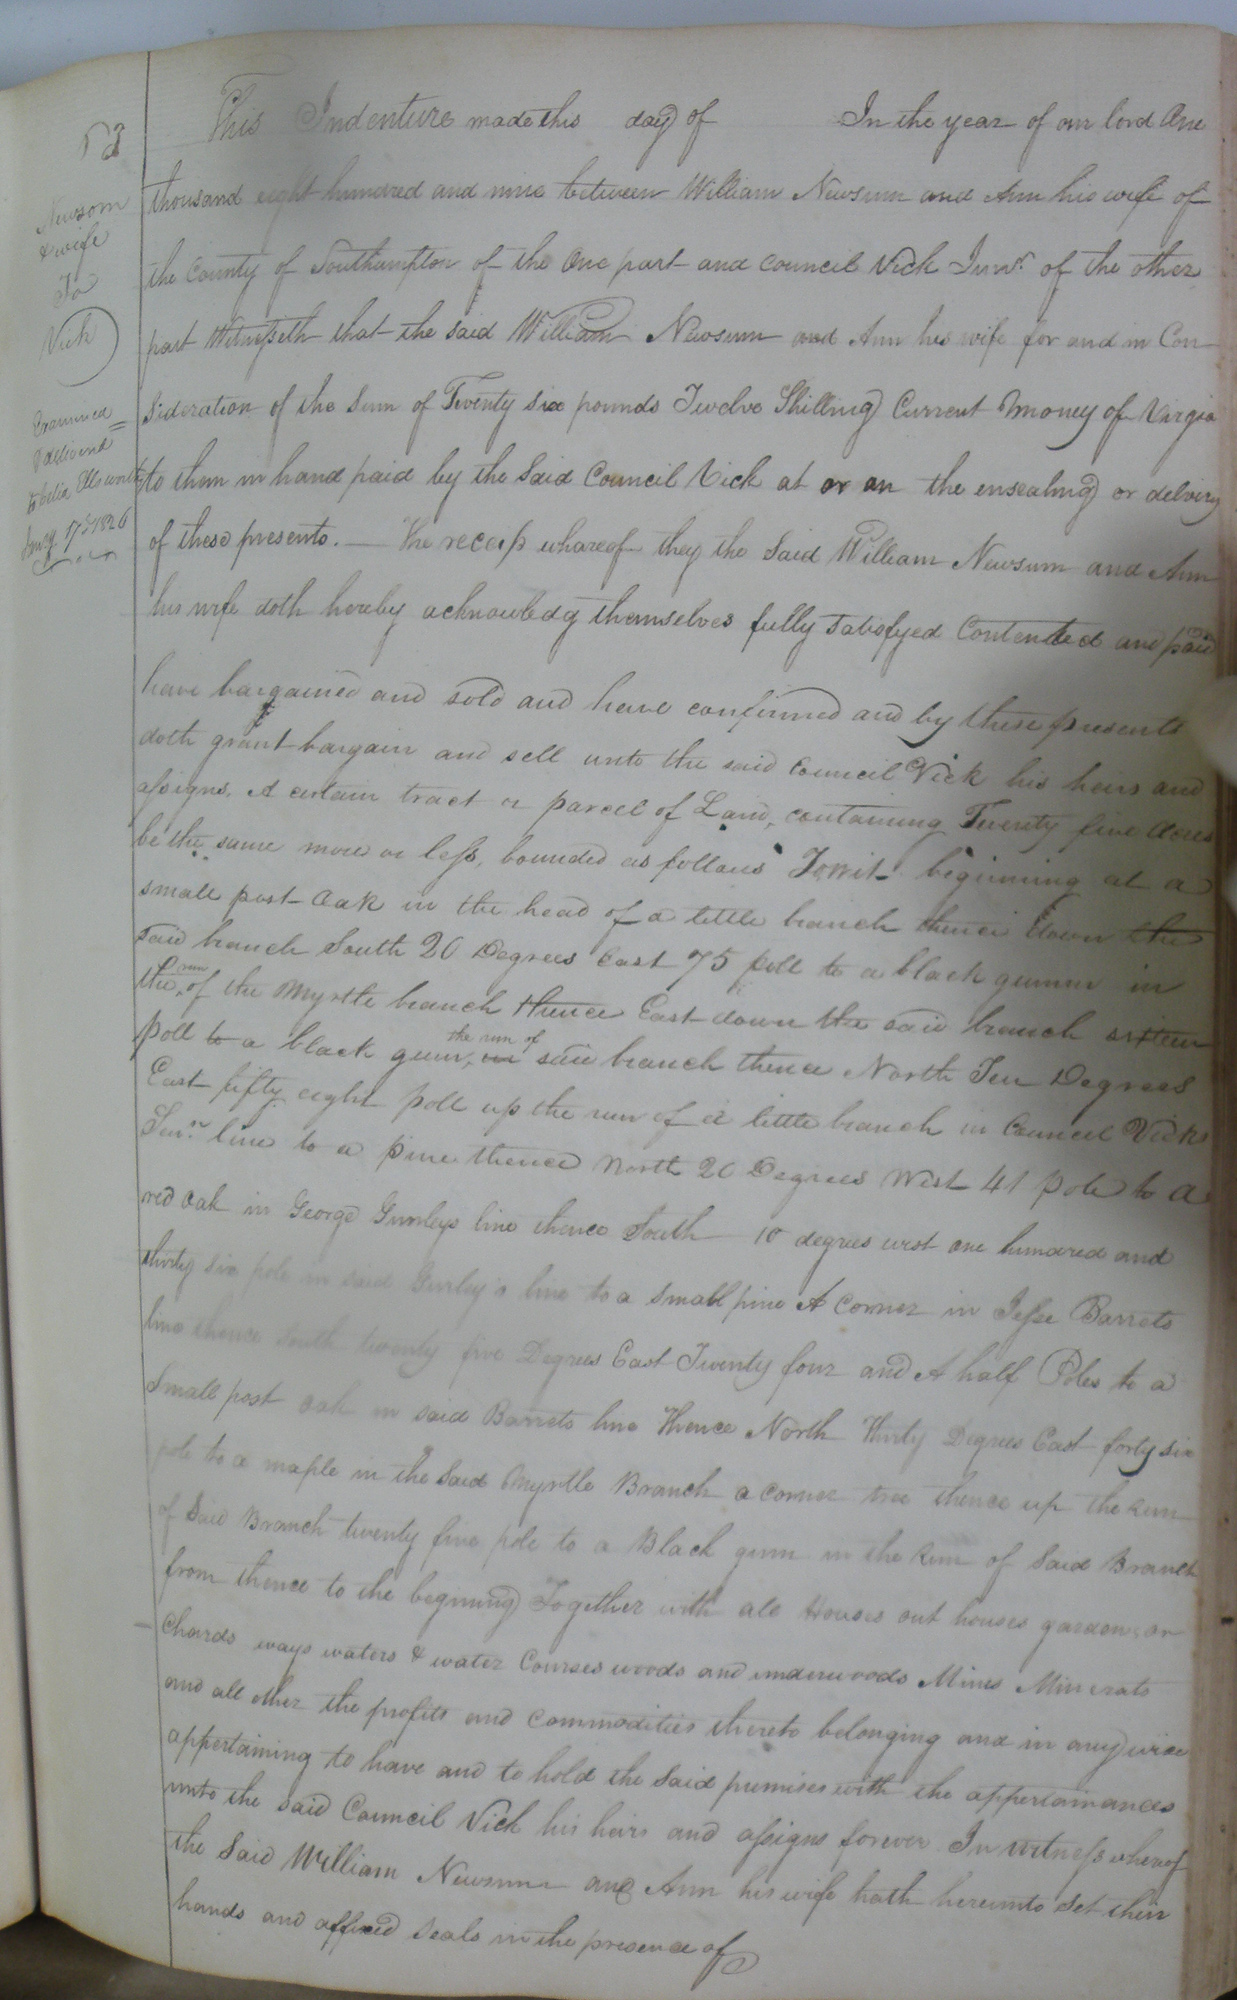 53
Newsom
& wife
To
Vick
Examined
& delivered
Jany 17th 1826
This Indenture made this day of In the year of our lord One
thousand eight hundred and nine between William Newsum and Ann his wife of
the County of Southampton of the One part and Council Vick Junr. of the other
part Witnesseth that the said William Newsum and Ann his wife for and in Con
sideration of the Sum of Twenty six pounds Twelve Shilling Current Money of Virgia
to them in hand paid by the Said Council Vick at or on the ensealing or delivry
of these presents. — The receip whareof they the Said William Newsum and Ann
his wife doth hereby acknowledg themselves fully Satisfyed Contented and paid
have bargained and sold and have confirmed and by these presents
doth grant bargain and sell unto the said Council Vick his heirs and
assigns, A certain tract or parcel of Land, containing Twenty five Acres
be the same more or less, bounded as follows Towit beginning at a
small post Oak in the head of a little branch thence down the
said branch South 20 Degrees East 75 poll to a black gumm in
the run of the Myrtle branch thence East down the said branch sixteen
poll to a black gum, the run of said branch thence North Ten Degrees
East fifty eight poll up the run of a little branch in Council Vicks
Junr. line to a pine thence North 20 Degrees West 41 pole to a
red Oak in George Gurleys line thence South 10 degrees west one hundred and
thirty six pole in said Gurley's line to a small pine A Corner in Jesse Barrets
line thence South twenty five Degrees East Twenty four and A half Poles to a
Small post oak in said Barrets line Thence North Thirty Degrees East forty six
pole to a maple in the Said Myrtle Branch a corner tree thence up the Run
of Said Branch twenty five pole to a Black gum in the Run of Said Branch
from thence to the begining Together with all Houses out houses gardens or
Chards ways waters & water Courses woods and underwoods Mines Minerals
and all other the profits and Commodities thereto belonging and in any wise
appertaining to have and to hold the Said premises with the appertainances
unto the said Council Vick his heirs and assigns forever In witness whereof
the Said William Newsum and Ann his wife hath hereunto Set their
hands and affixed Seals in the presence of